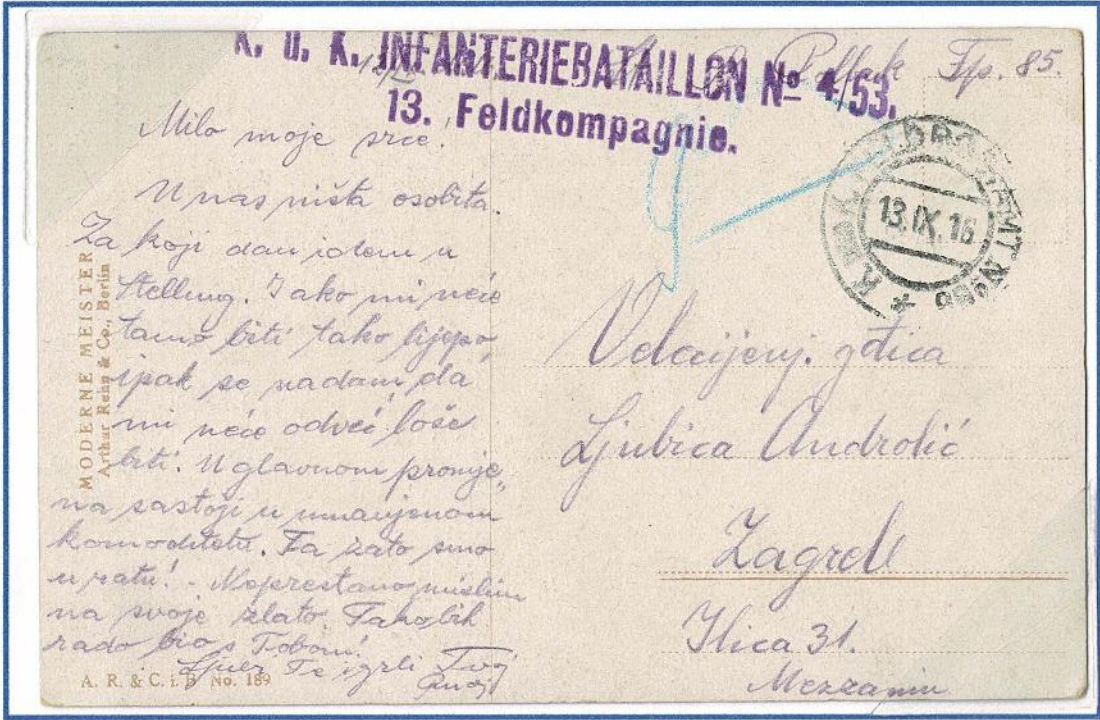 K. u. K. INFANTERIEBATAILLON No 4/53.
13. Feldkompagnie.
Pollak Fp. 85.
Milo moje srce!
U nas ništa osobita.
Za koji dan idem u
Stellung. Iako mi neće
tamo biti tako lijepo,
ipak se nadam da
mi neće odveć loše
biti. U glavnom promje„
na sastoji u umanjenom
komoditetu. Ta zato smo
u ratu! - Neprestano mislim
na svoje zlato. Tako bih
rado bio s Tobom!
Ljubi Te i grli Tvoj
MODERNE MEISTER
Arthur Rehn & Co., Berlin
A. R. & C. i. B. No. 189
13.IX.16
Velecijenj. gđica
Ljubica Androlić
Zagreb
Ilica 31.
Mezzanin